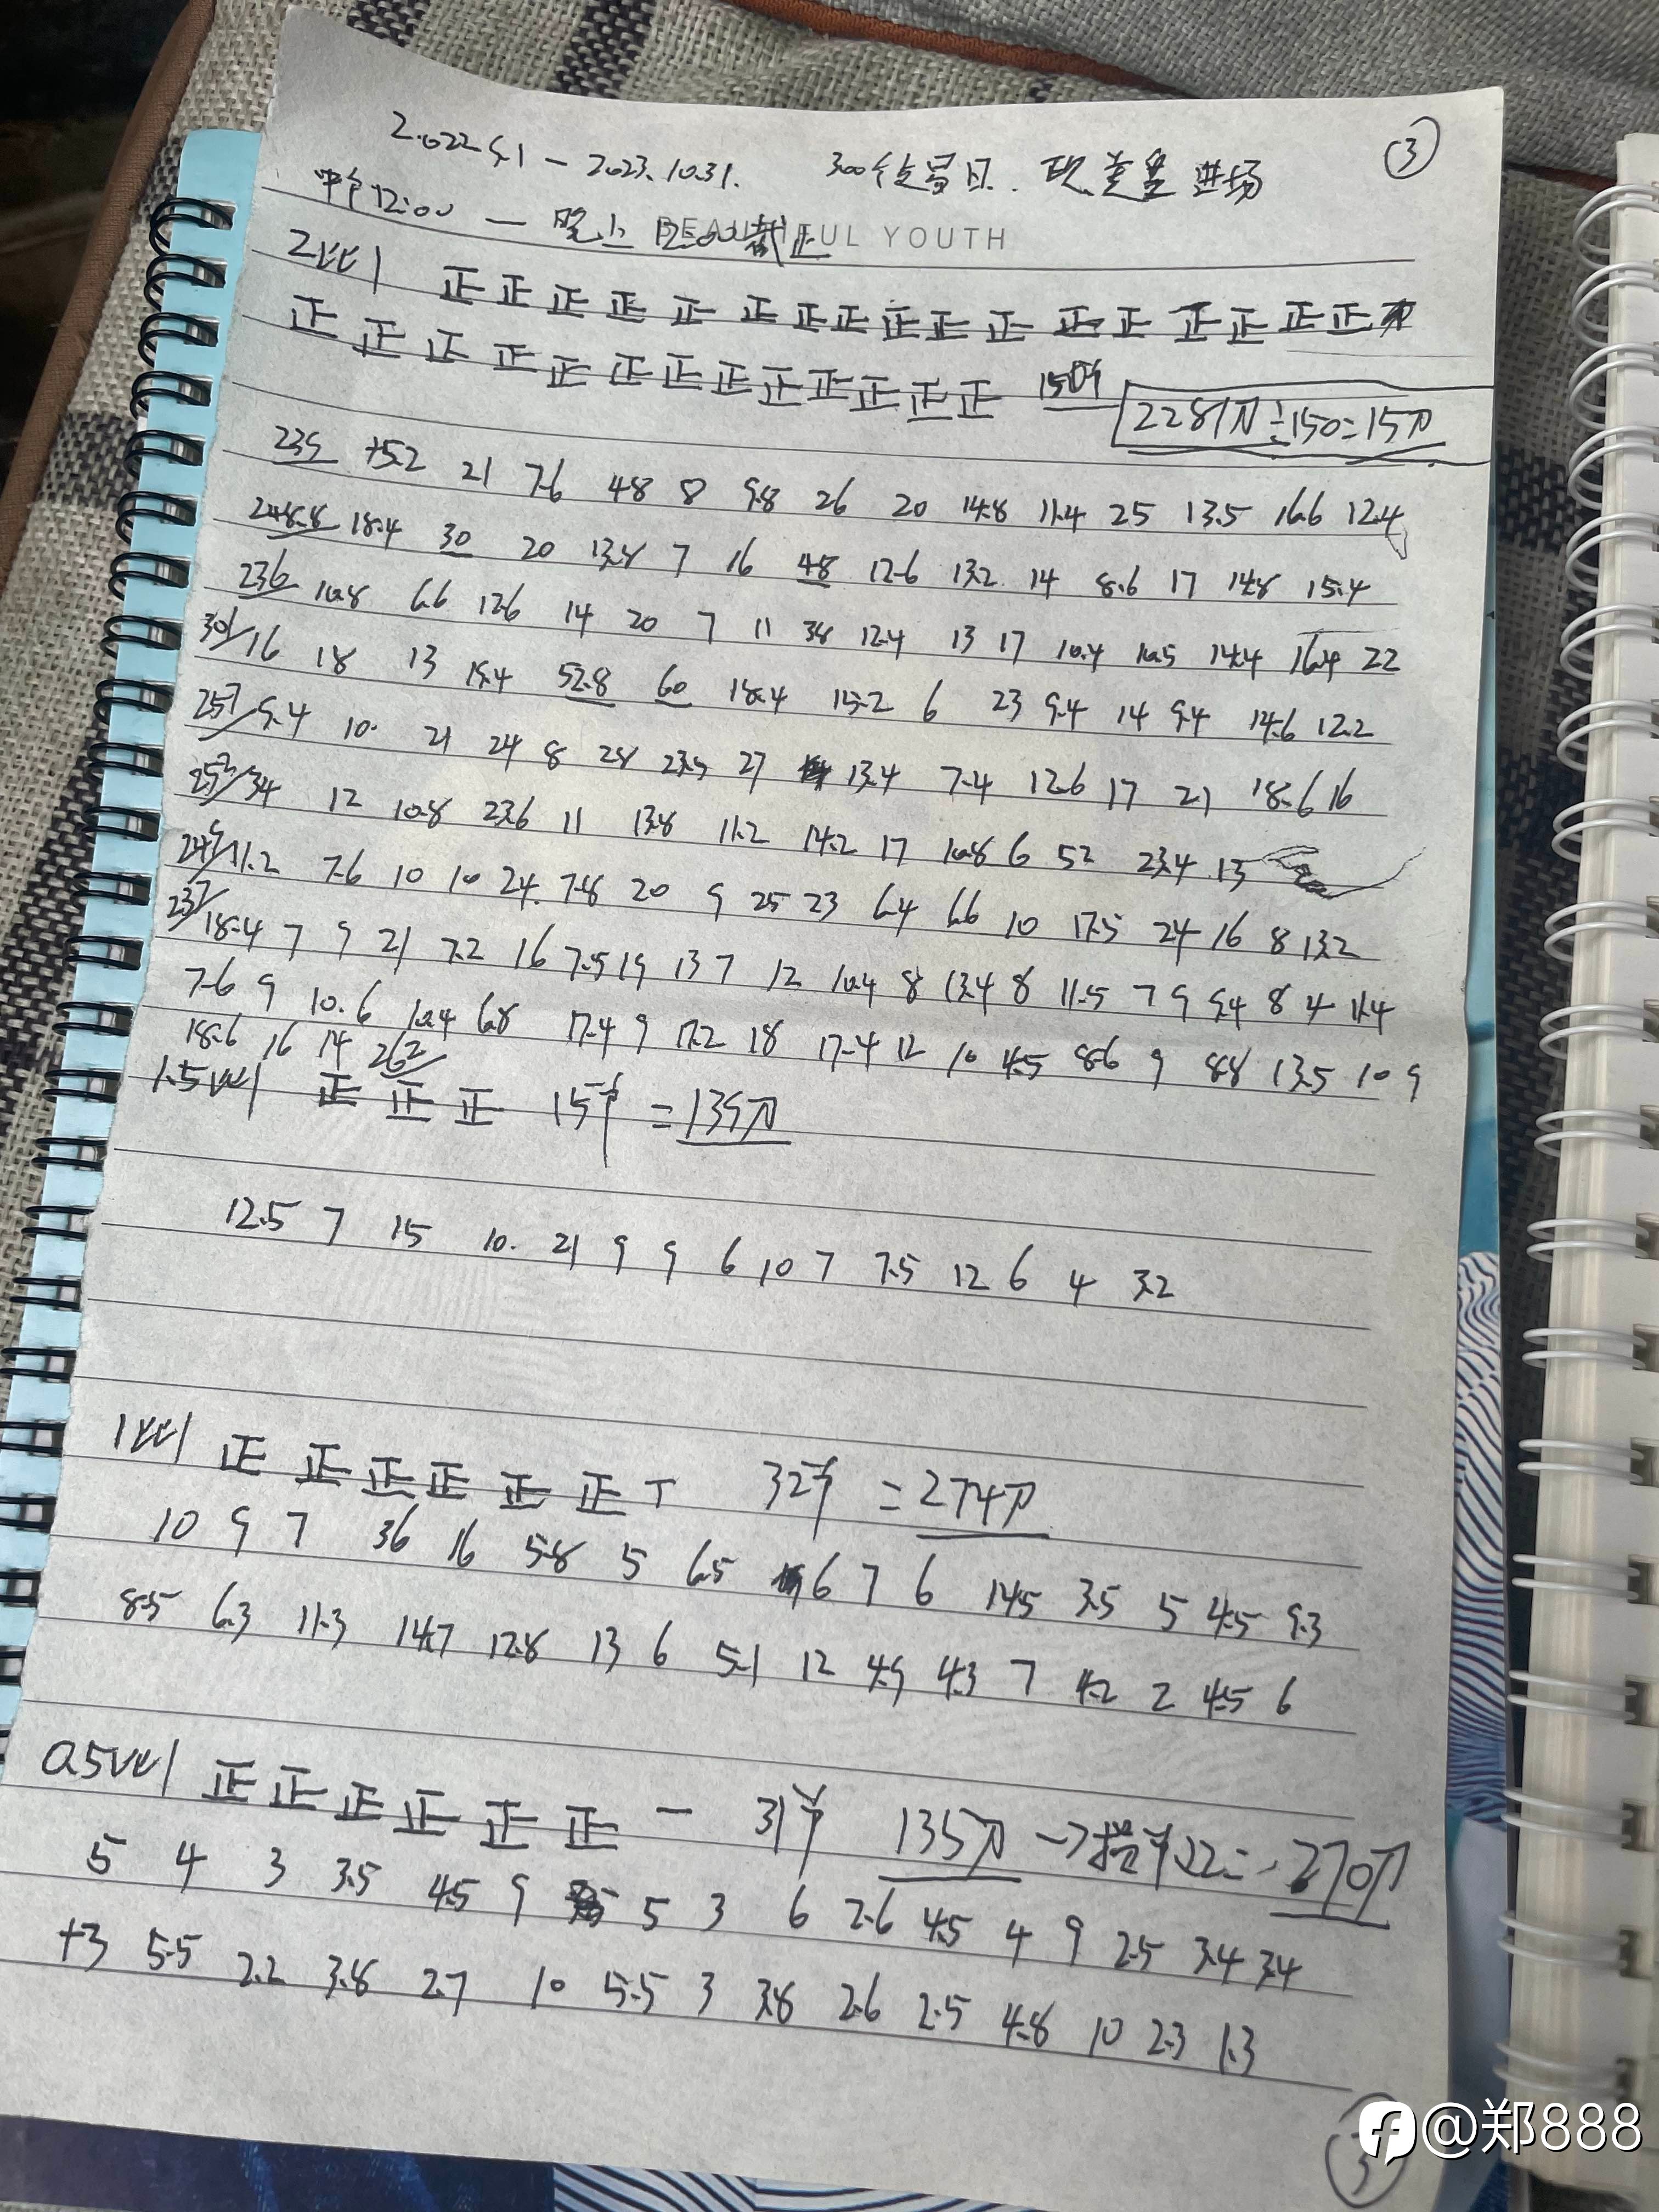 2022.5.1 — 2023.10.31. 300个交易日. 进场 ③
中午12:00 — 晚上12:00截止
BEAUTIFUL YOUTH
2比1 正正正正正正正正正正正正正正正正正
正正正正正正正正正正正正正 150
2281刀÷150=15刀
239 +5.2 21 7.6 4.8 8 9.8 26 20 14.8 11.4 25 13.5 16.6 12.4
248.8 18.4 30 20 13.8 7 16 48 12.6 13.2 14 8.6 17 14.8 15.4
236 10.8 6.6 12.6 14 20 7 11 38 12.4 13 17 10.4 10.5 14.4 16.4 22
301 16 18 13 15.4 52.8 60 18.4 15.2 6 23 9.4 14 9.4 14.6 12.2
257 9.4 10. 21 24 8 28 23.5 27 13.4 7.4 12.6 17 21 18.6 16
252 34 12 10.8 23.6 11 13.8 11.2 14.2 17 10.8 6 52 23.4 13
249 11.2 7.6 10 10 24. 7.8 20 9 25 23 6.4 6.6 10 17.5 24 16 8 13.2
237 18.4 7 9 21 7.2 16 7.5 19 13 7 12 10.4 8 13.4 8 11.5 7 9 9.4 8 4 11.4
7.6 9 10.6 10.4 6.8 17.4 9 17.2 18 17.4 12 10 4.5 8.6 9 8.8 13.5 10 9
18.6 16 14 262
1.5比1 正正正 15单 = 139刀
12.5 7 15 10. 21 9 9 6 10 7 7.5 12 6 4 3.2
1比1 正正正正正正丅 32单 = 274刀
10 9 7 36 16 5.8 5 6.5 6 7 6 14.5 3.5 5 4.5 9.3
8.5 6.3 11.3 14.7 12.8 13 6 5.1 12 4.9 4.3 7 4.2 2 4.5 6
0.5比1 正正正正正正一 31单 135刀 → 损单X2= 270刀
5 4 3 3.5 4.5 9 5 3 6 2.6 4.5 4 9 2.5 3.4 3.4
+3 5.5 2.2 3.8 2.7 10 5.5 3 3.8 2.6 2.5 4.8 10 2.3 1.3
③
@郑888